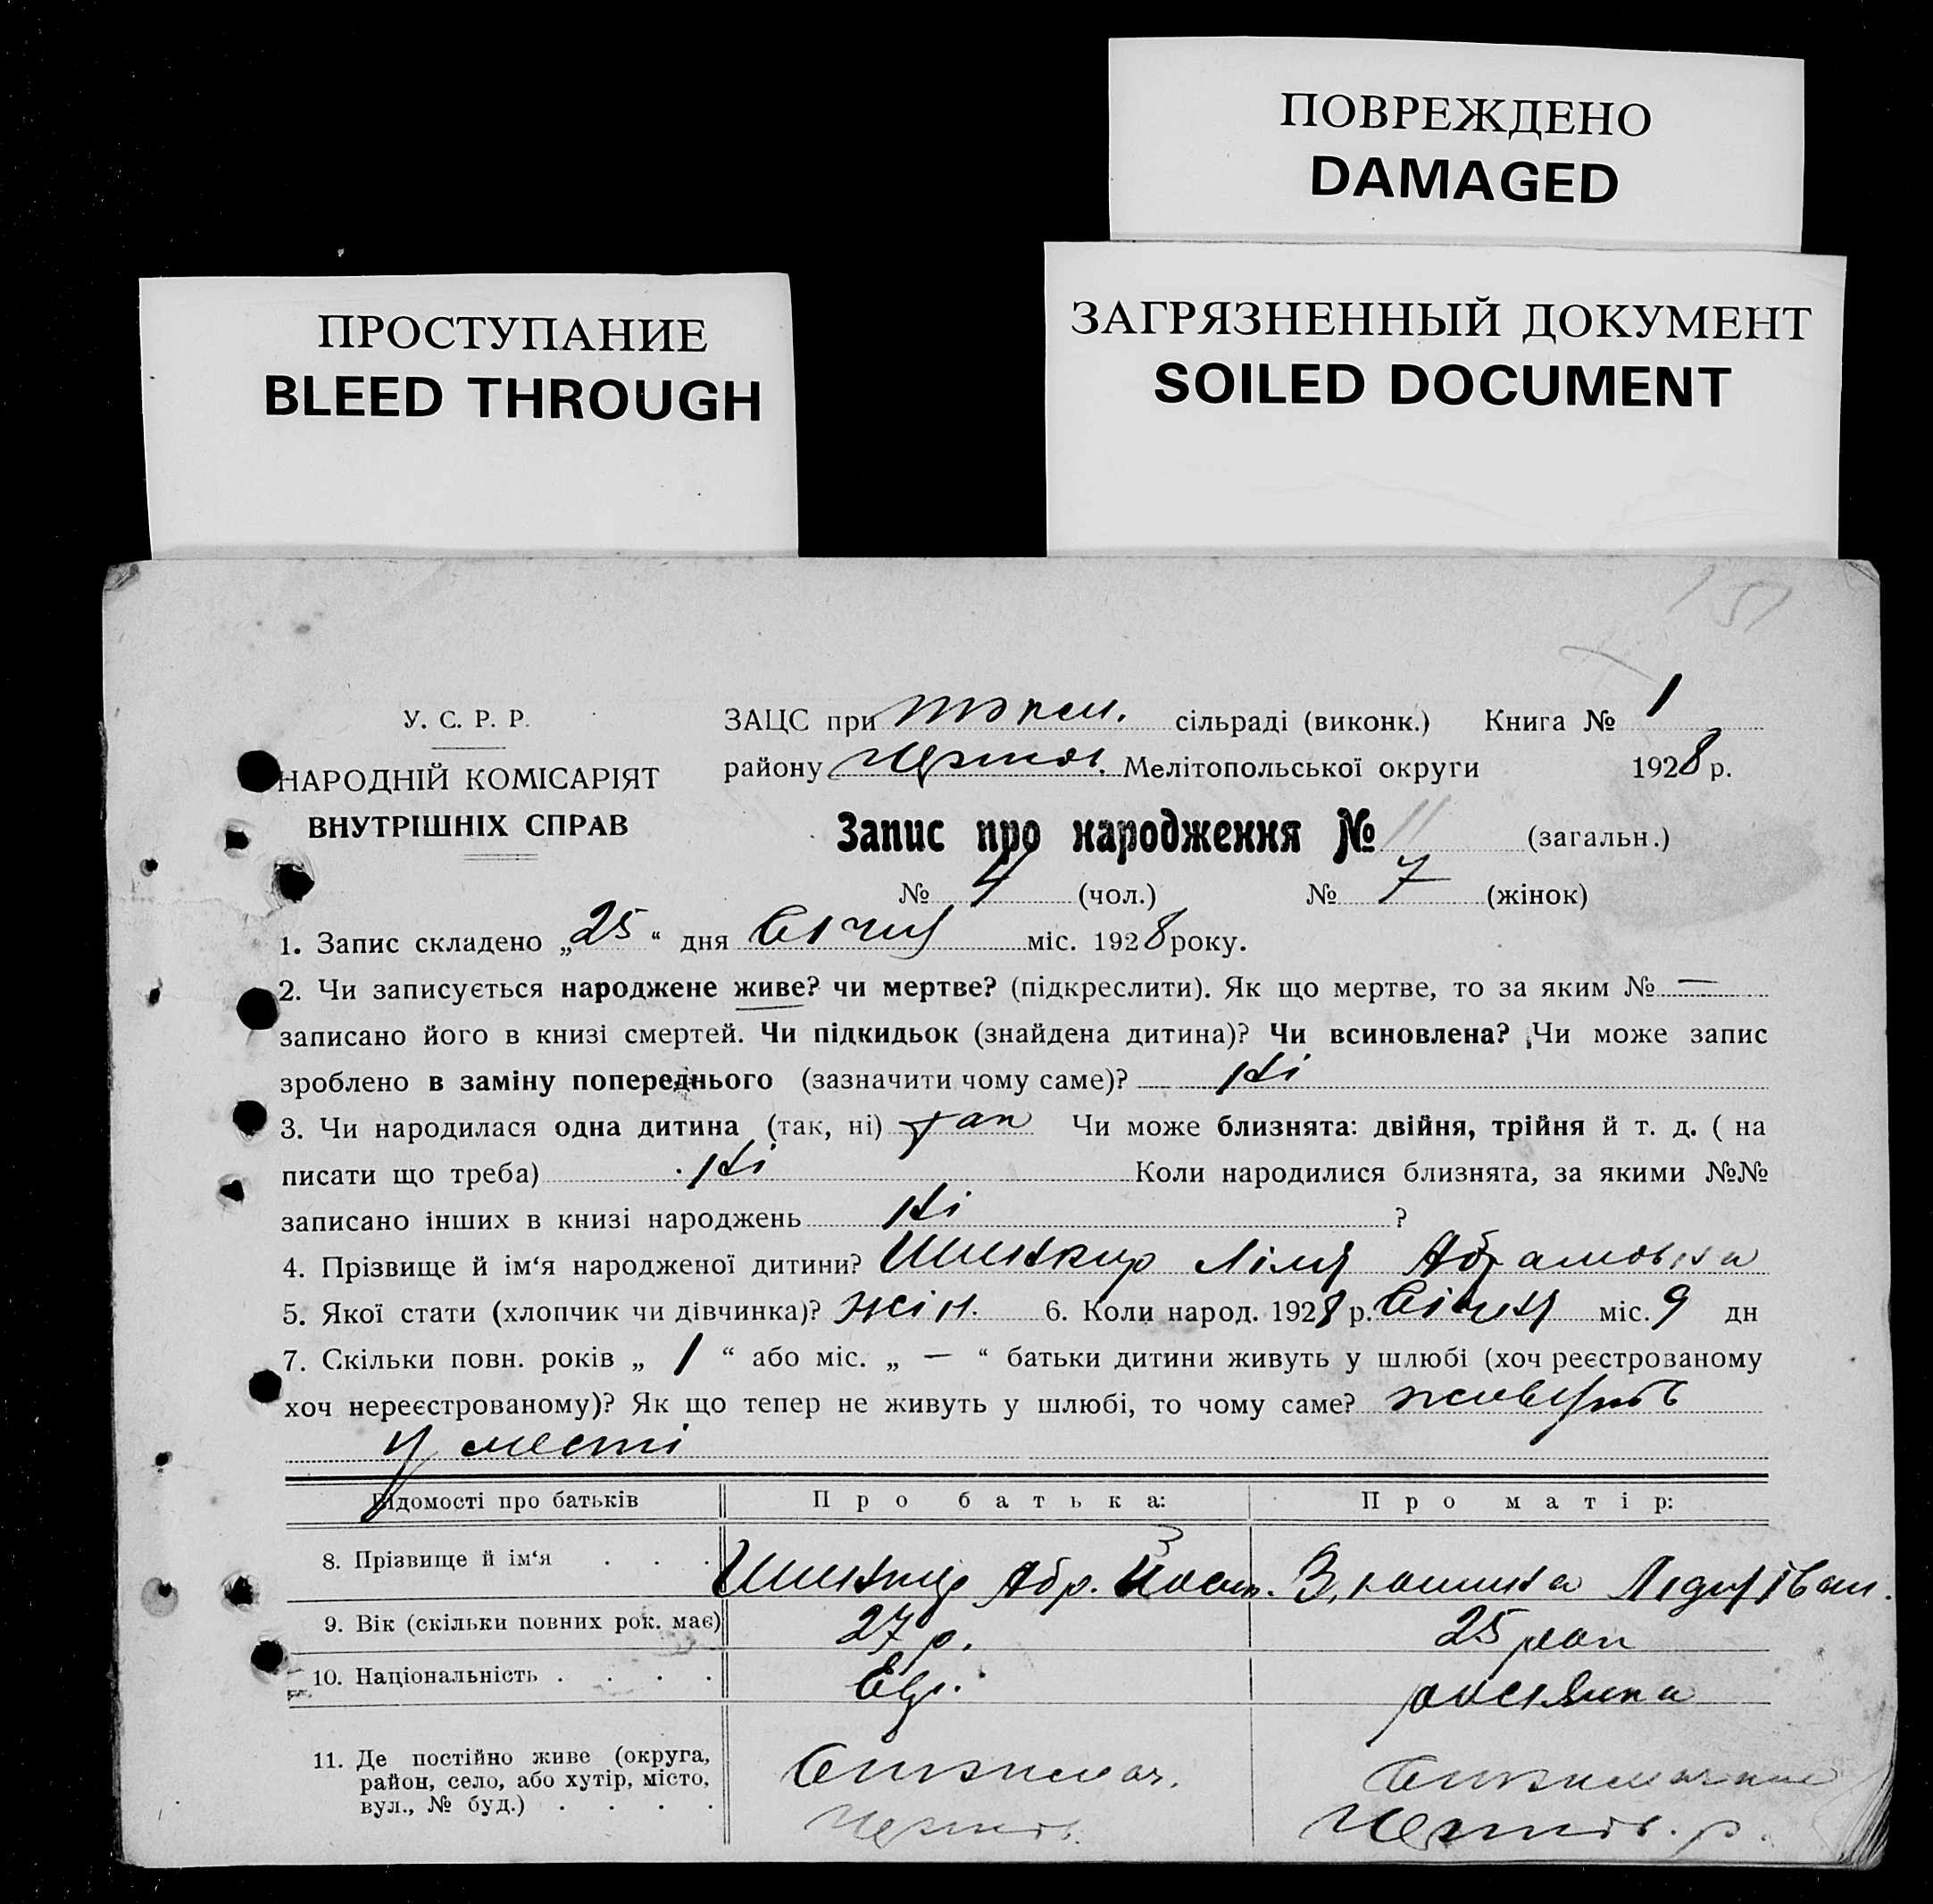 ПОВРЕЖДЕНО
DAMAGED
ПРОСТУПАНИЕ
BLEED THROUGH
ЗАГРЯЗНЕННЫЙ ДОКУМЕНТ
SOILED DOCUMENT
151
У. С. Р. Р.
НАРОДНІЙ КОМІСАРІЯТ
ВНУТРІШНІХ СПРАВ
ЗАЦС при сільраді (виконк.) Книга № 1
району Мелітопольської округи 1928 р.
Запис про народження № 11 (загальн.)
№ 4 (чол.) № 7 (жінок)
1. Запис складено „25“ дня Січня міс. 1928 року.
2. Чи записується народжене живе? чи мертве? (підкреслити). Як що мертве, то за яким № —
записано його в книзі смертей. Чи підкидьок (знайдена дитина)? Чи всиновлена? Чи може запис
зроблено в заміну попереднього (зазначити чому саме)? Ні
3. Чи народилася одна дитина (так, ні) так Чи може близнята: двійня, трійня й т. д. ( на
писати що треба) Ні Коли народилися близнята, за якими №№
записано інших в книзі народжень Ні ?
4. Прізвище й ім‘я народженої дитини? Ліля Абрамовна
5. Якої стати (хлопчик чи дівчинка)? жін. 6. Коли народ. 1928 р. Січня міс. 9 дн
7. Скільки повн. років „ 1 “ або міс. „ — “ батьки дитини живуть у шлюбі (хоч реєстрованому
хоч нереєстрованому)? Як що тепер не живуть у шлюбі, то чому саме? живуть
у месті
Відомості про батьків Про батька: Про матір:
8. Прізвище й ім‘я . . . Абр. Йосип. Лідія Іван.
9. Вік (скільки повних рок. має) 27 р. 25 рок
10. Національність . . . . Євр. росіянка
11. Де постійно живе (округа,
район, село, або хутір, місто,
вул., № буд.) . . . .